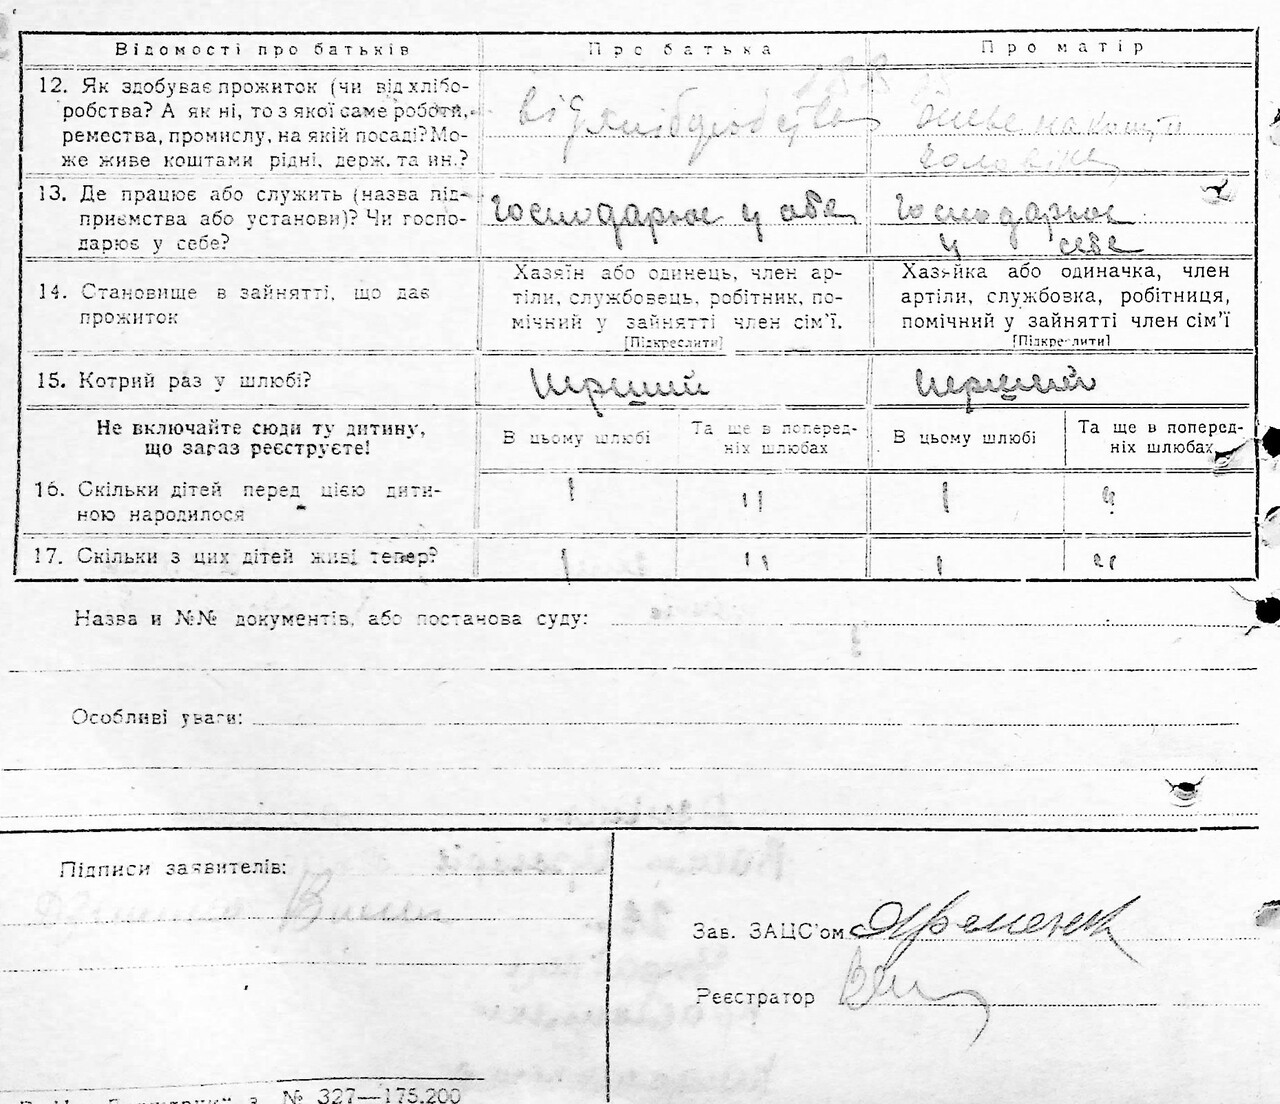 Відомості про батьків Про батька Про матір
12. Як здобуває прожиток (чи від хлібо-
робства? А як ні, то з якої саме роботи,
ремества, промислу, на якій посаді? Мо-
же живе коштами рідні, держ. та ин.?
від хліборобства
живе на кошти
чоловіка
13. Де працює або служить (назва під-
приємства або установи)? Чи госпо-
дарює у себе?
Господарює у себе
Господарює
у себе
14. Становище в зайнятті, що дає
прожиток
Хазяїн або одинець, член ар-
тіли, службовець, робітник, по-
мічний у зайнятті член сім’ї.
[Підкреслити]
Хазяйка або одиначка, член
артіли, службовка, робітниця,
помічний у зайнятті член сім’ї
[Підкреслити]
15. Котрий раз у шлюбі? перший перший
Не включайте сюди ту дитину,
що зараз реєструєте!
В цьому шлюбі
Та ще в поперед-
ніх шлюбах
В цьому шлюбі
Та ще в поперед-
ніх шлюбах
16. Скільки дітей перед цією дити-
ною народилося
1 " 1 "
17. Скільки з цих дітей живі тепер? 1 " 1 "
Назва и №№ документів, або постанова суду:
Особливі уваги:
Підписи заявителів:
Зав. ЗАЦС’ом
Реєстратор
№ 327—175.200